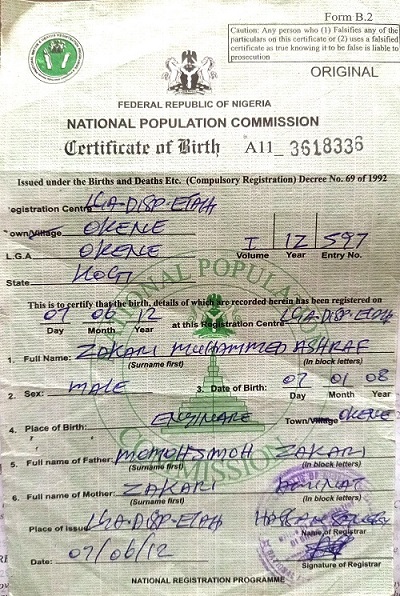 Form B.2
Caution: Any person who (1) Falsifies any of the
particulars on this certificate or (2) uses a falsified
certificate as true knowing it to be false is liable to
prosecution
ORIGINAL
FEDERAL REPUBLIC OF NIGERIA
NATIONAL POPULATION COMMISSION
Certificate of Birth A11_3618336
Issued under the Births and Deaths Etc. (Compulsory Registration) Decree No. 69 of 1992
egistration Centre LGA-DISP-ETAHI
own/Village OKENE
L.G.A OKENE I 12 597
Volume Year Entry No.
State KOGI
This is to certify that the birth, details of which are recorded herein has been registered on
07 06 12 at this Registration Centre LGA-DISP-ETAHI
Day Month Year
1. Full Name: ZAKARI MUHAMMED ASHRAF
(Surname first) (In block letters)
2. Sex: MALE 3. Date of Birth: 07 01 08
Day Month Year
4. Place of Birth: Town/Village OKENE
5. Full name of Father: MOMOHSIMOH ZAKARI
(Surname first) (In block letters)
6. Full name of Mother: ZAKARI
(Surname first) (In block letters)
Place of Issue LGA-DISP-ETAHI HASSAN
Name of Registrar
Date: 07/06/12
Signature of Registrar
NATIONAL REGISTRATION PROGRAMME
NATIONAL POPULATION
COMMISSION